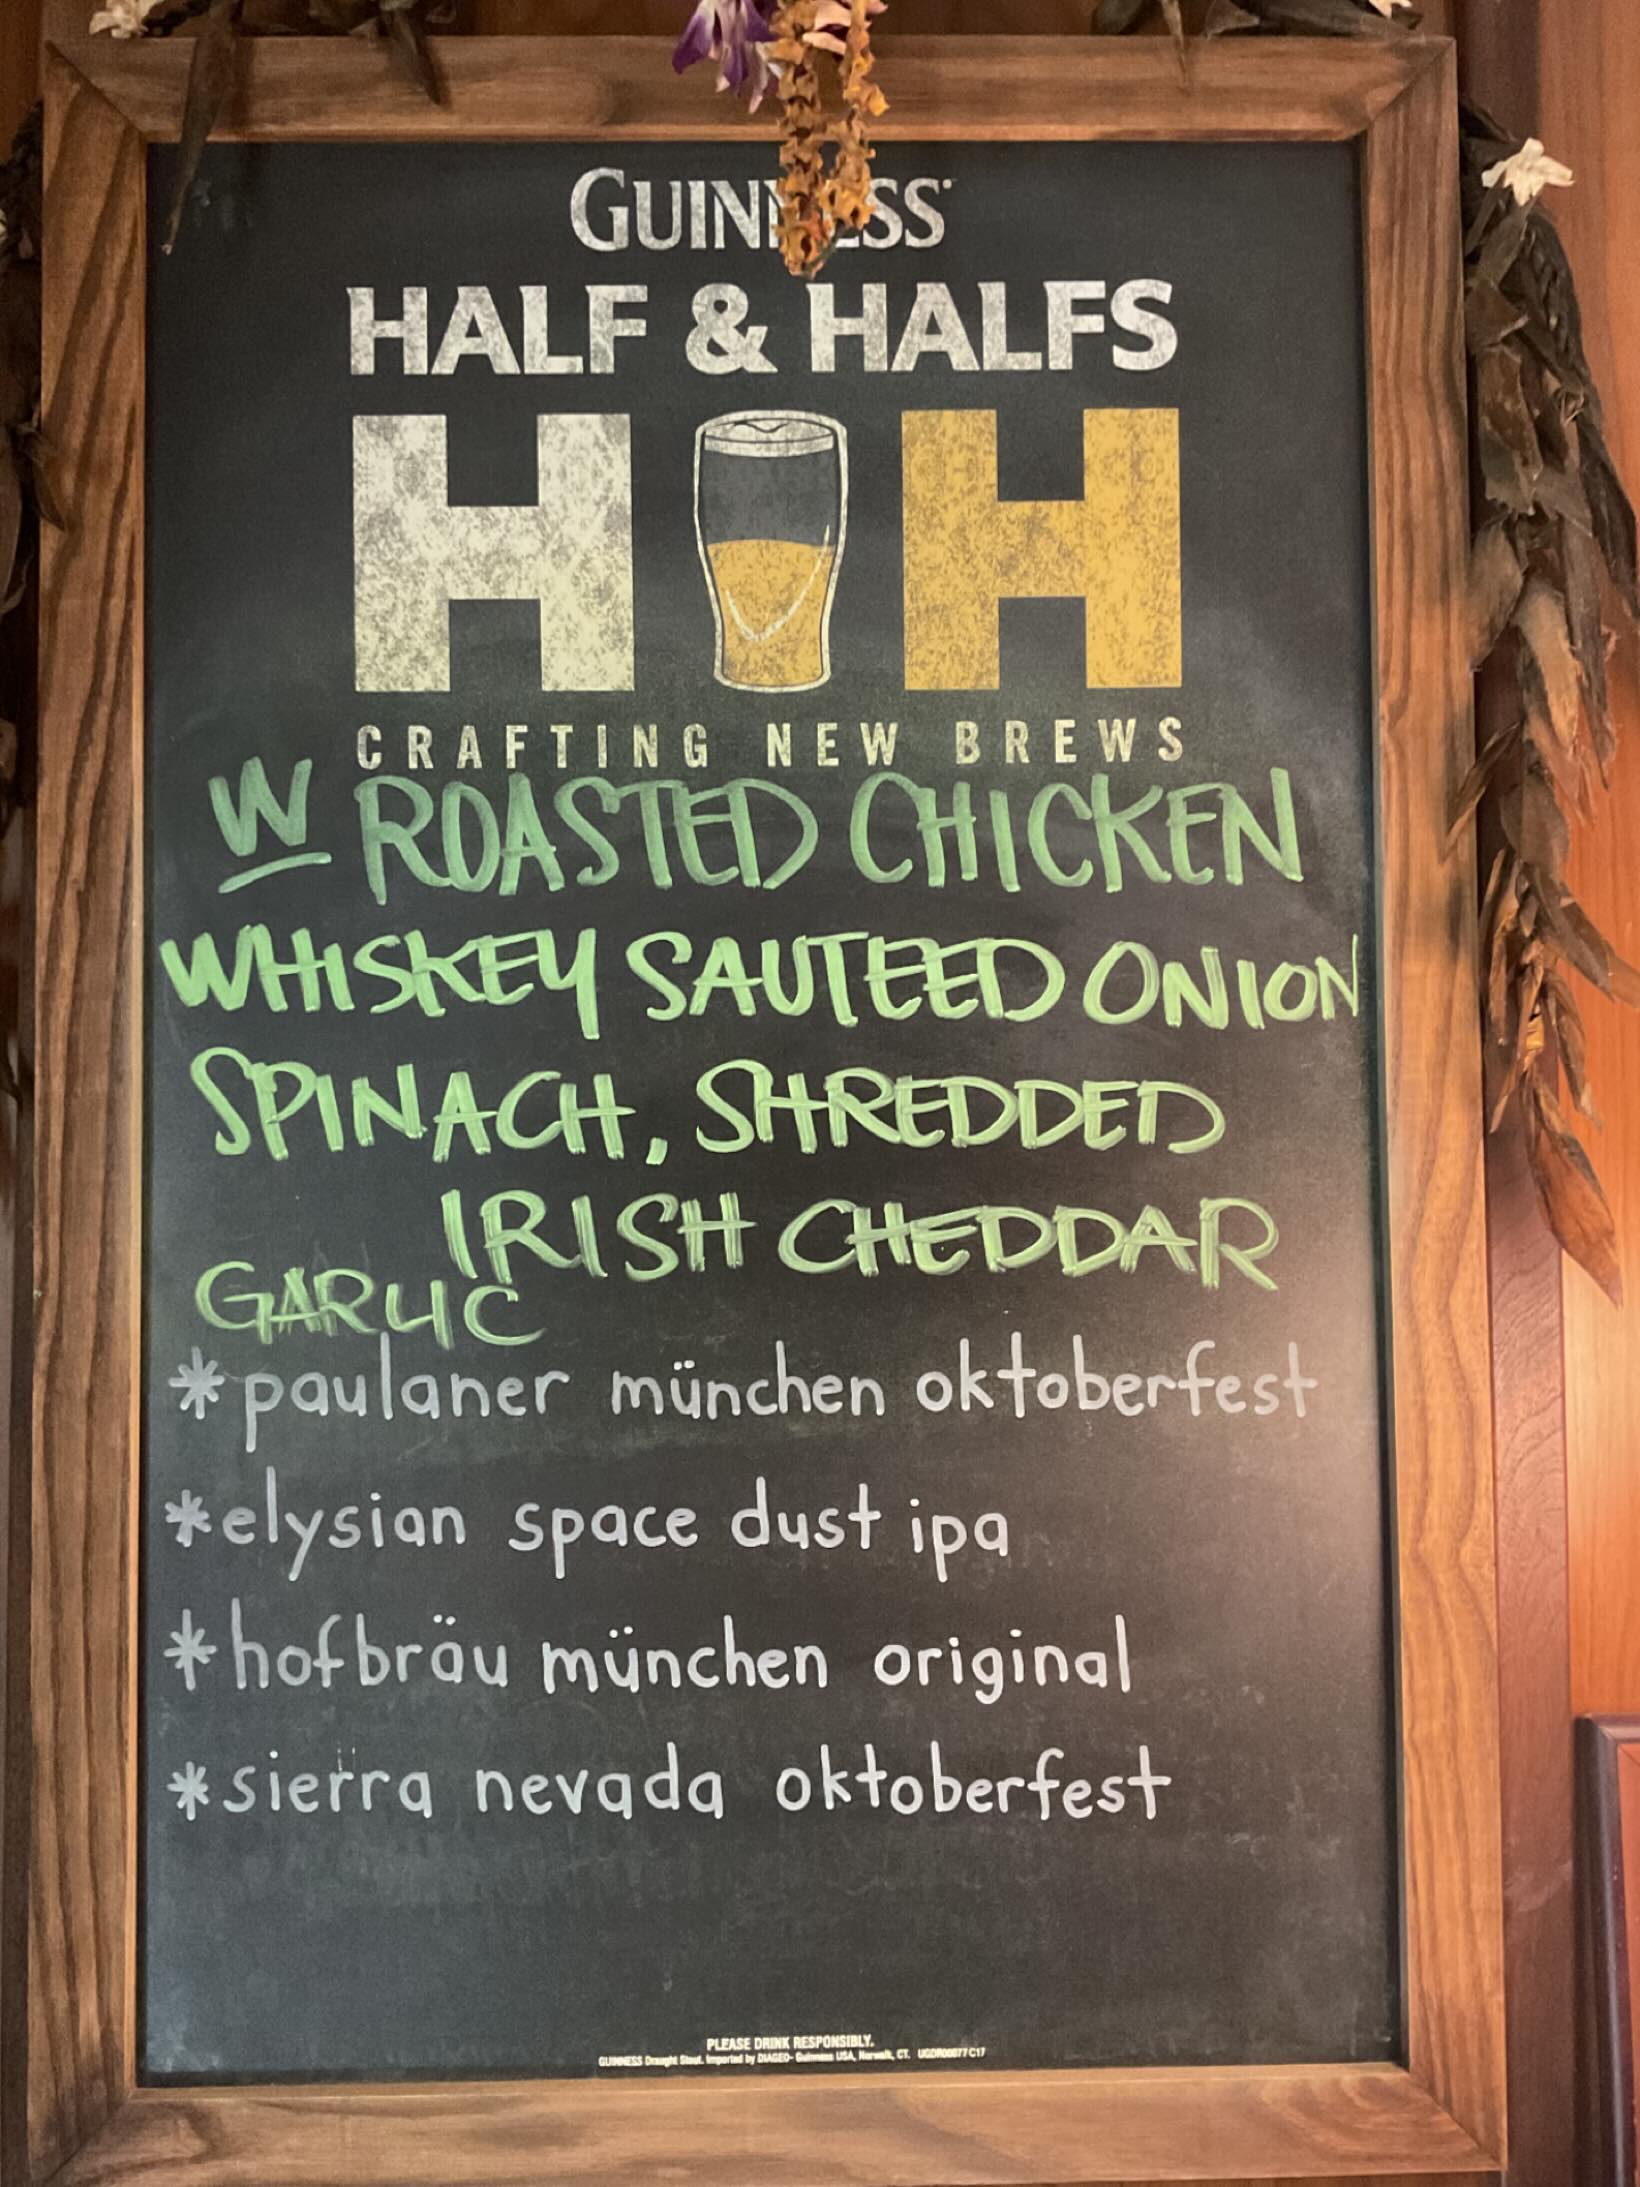 GUINNESS
HALF & HALFS
H H
CRAFTING NEW BREWS
W ROASTED CHICKEN
WHISKEY SAUTEED ONION
SPINACH, SHREDDED
IRISH CHEDDAR
GARLIC
*paulaner münchen oktoberfest
*elysian space dust ipa
*hofbräu münchen original
*sierra nevada oktoberfest
PLEASE DRINK RESPONSIBLY.
GUINNESS Draught Stout. Imported by DIAGEO- Guinness USA, Norwalk, CT. UGDR00077 C17